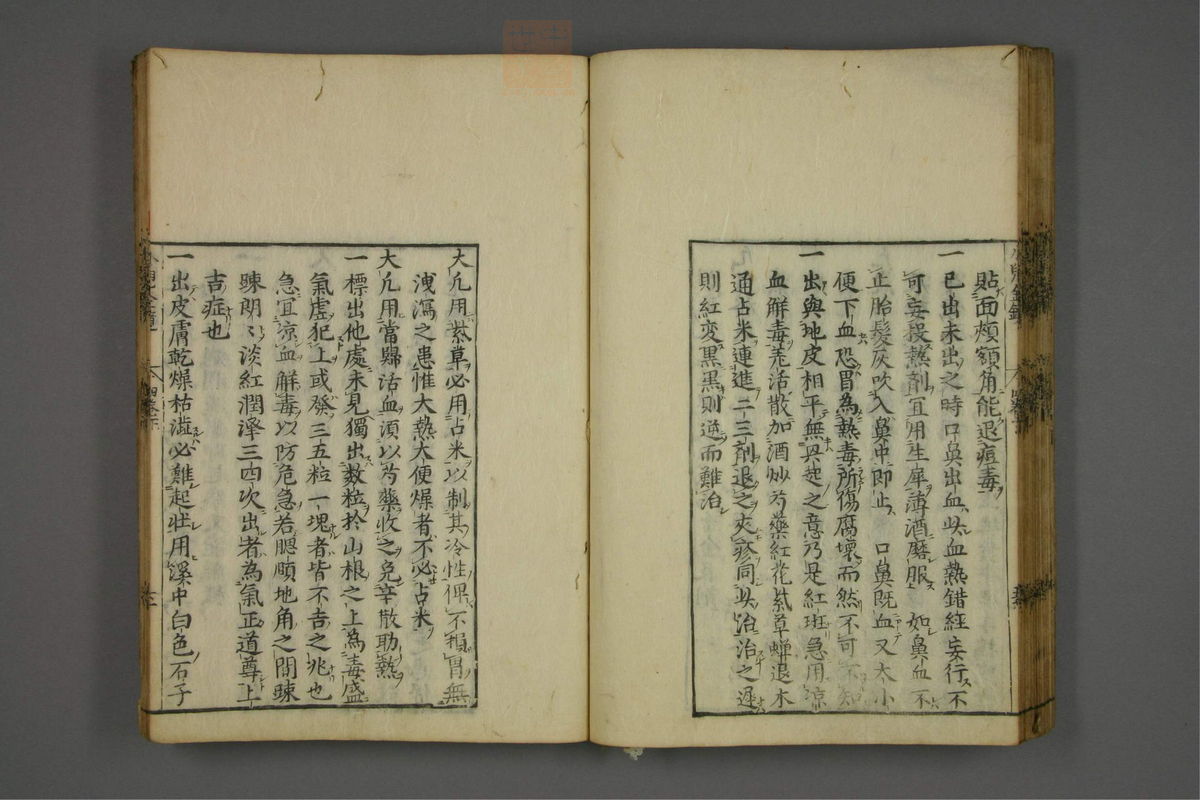 貼面頰額角能退痘毒
一已出未出之時口鼻出血此血熱錯經妄行不
可妄投熱劑冝用生犀薄酒磨服 如鼻血不
止胎髮灰吹入鼻中即止 口鼻既血又大小
便下血恐胃為熱毒所傷腐壞而然不可不知
一出與地皮相平無起之意乃是紅斑急用涼
血解毒活散加酒炒芍藥紅花紫草蟬退木
通占米連進二三劑退之夾疹同此治治之遲
則紅変黑黑則逆而難治
大凢用紫草必用占米以制其冷性俾不損胃無
洩瀉之患惟大熱大便燥者不必占米
大凢用當歸活血須以芍藥收之免辛散助熱
一標出他處未見獨出数粒於山根之上為毒盛
氣虛犯上或發三五粒一塊者皆不吉之兆也
急冝凉血解毒以防危急若腮頤地角之間踈
踈朗〻淡紅潤澤三四次出者為氣正道尊上
吉症也
一出皮膚乾燥枯澁必難起壮用溪中白色石子